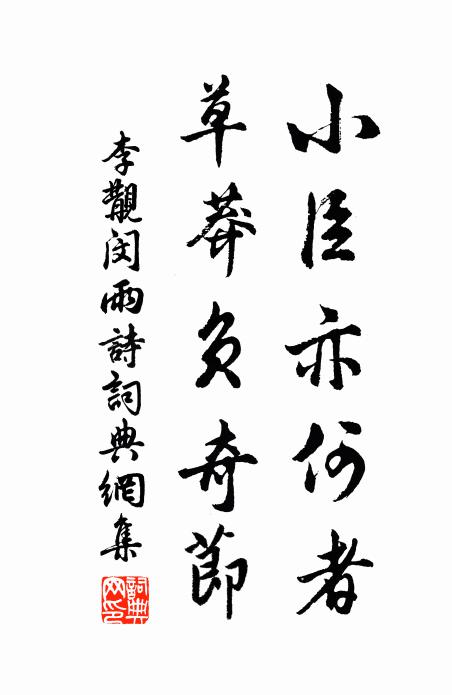 小臣亦何者
草莽負奇節
李覯閔雨詩詞典網集
詞典
网印